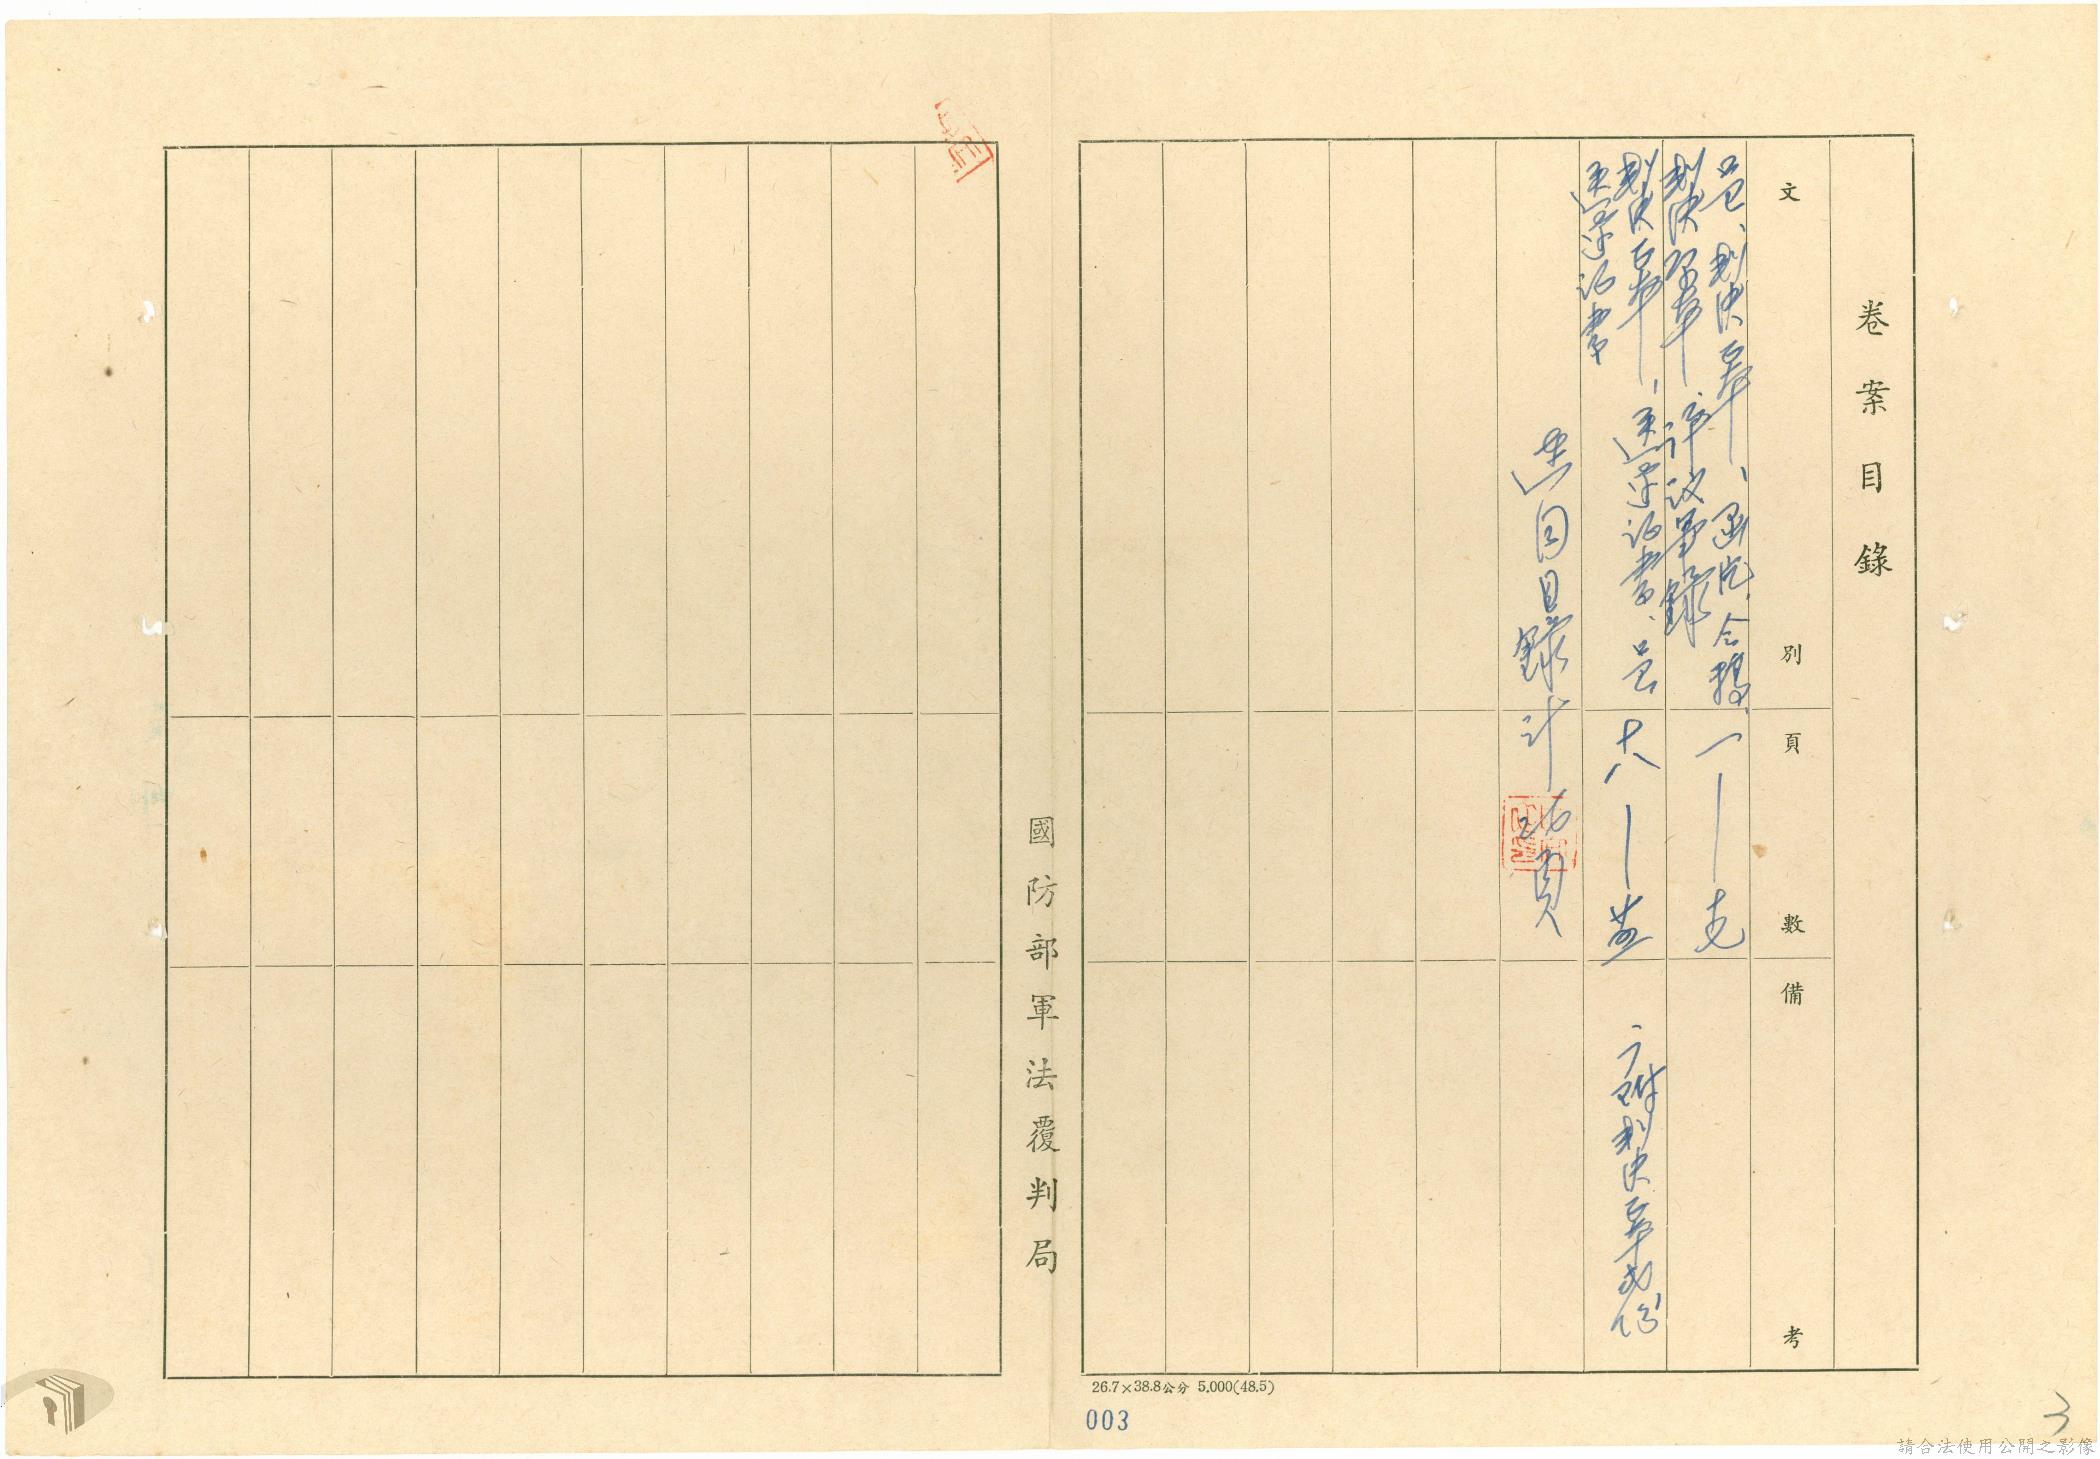 卷案目錄
文別
頁數
備考
呈、判決書、函片、令稿、
一——
判決書、評議筆錄
判決書、送達證書、呈
十八——
附判決書弍份
送達證書
連同目錄計 頁
國防部軍法覆判局
26.7×38.8公分 5.000(48.5)
003
3
請合法使用公開之影像